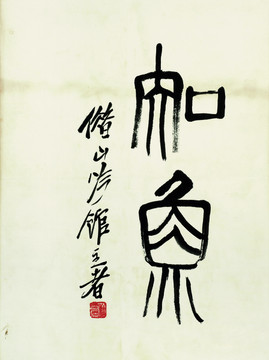 知魚
借山吟館主者